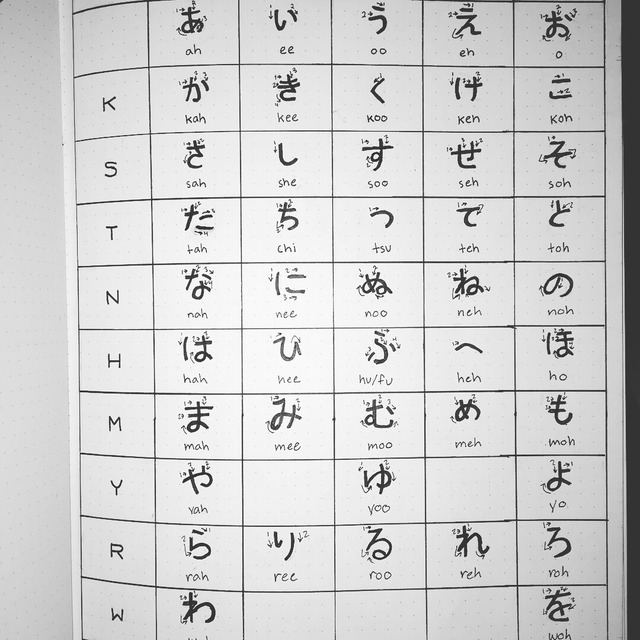 あ い う え お
ah ee oo eh o
K か き く け こ
kah kee koo keh koh
S さ し す せ そ
sah she soo seh soh
T た ち つ て と
tah chi tsu teh toh
N な に ぬ ね の
nah nee noo neh noh
H は ひ ふ へ ほ
hah hee hu/fu heh ho
M ま み む め も
mah mee moo meh moh
Y や ゆ よ
yah yoo yo
R ら り る れ ろ
rah ree roo reh roh
W わ を
woh